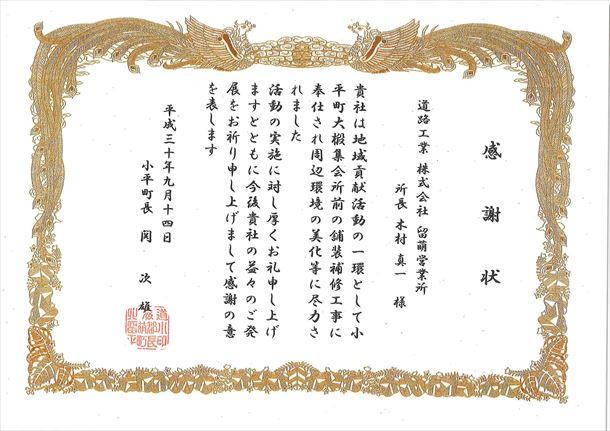 感謝状
道路工業 株式会社 留萌営業所
所長 木村 真一 様
貴社は地域貢献活動の一環として小
平町大椴集会所前の舗装補修工事に
奉仕され周辺環境の美化等に尽力さ
れました
活動の実施に対し厚くお礼申し上げ
ますとともに今後貴社の益々のご発
展をお祈り申し上げまして感謝の意
を表します
平成三十年九月十四日
小平町長 関 次 雄